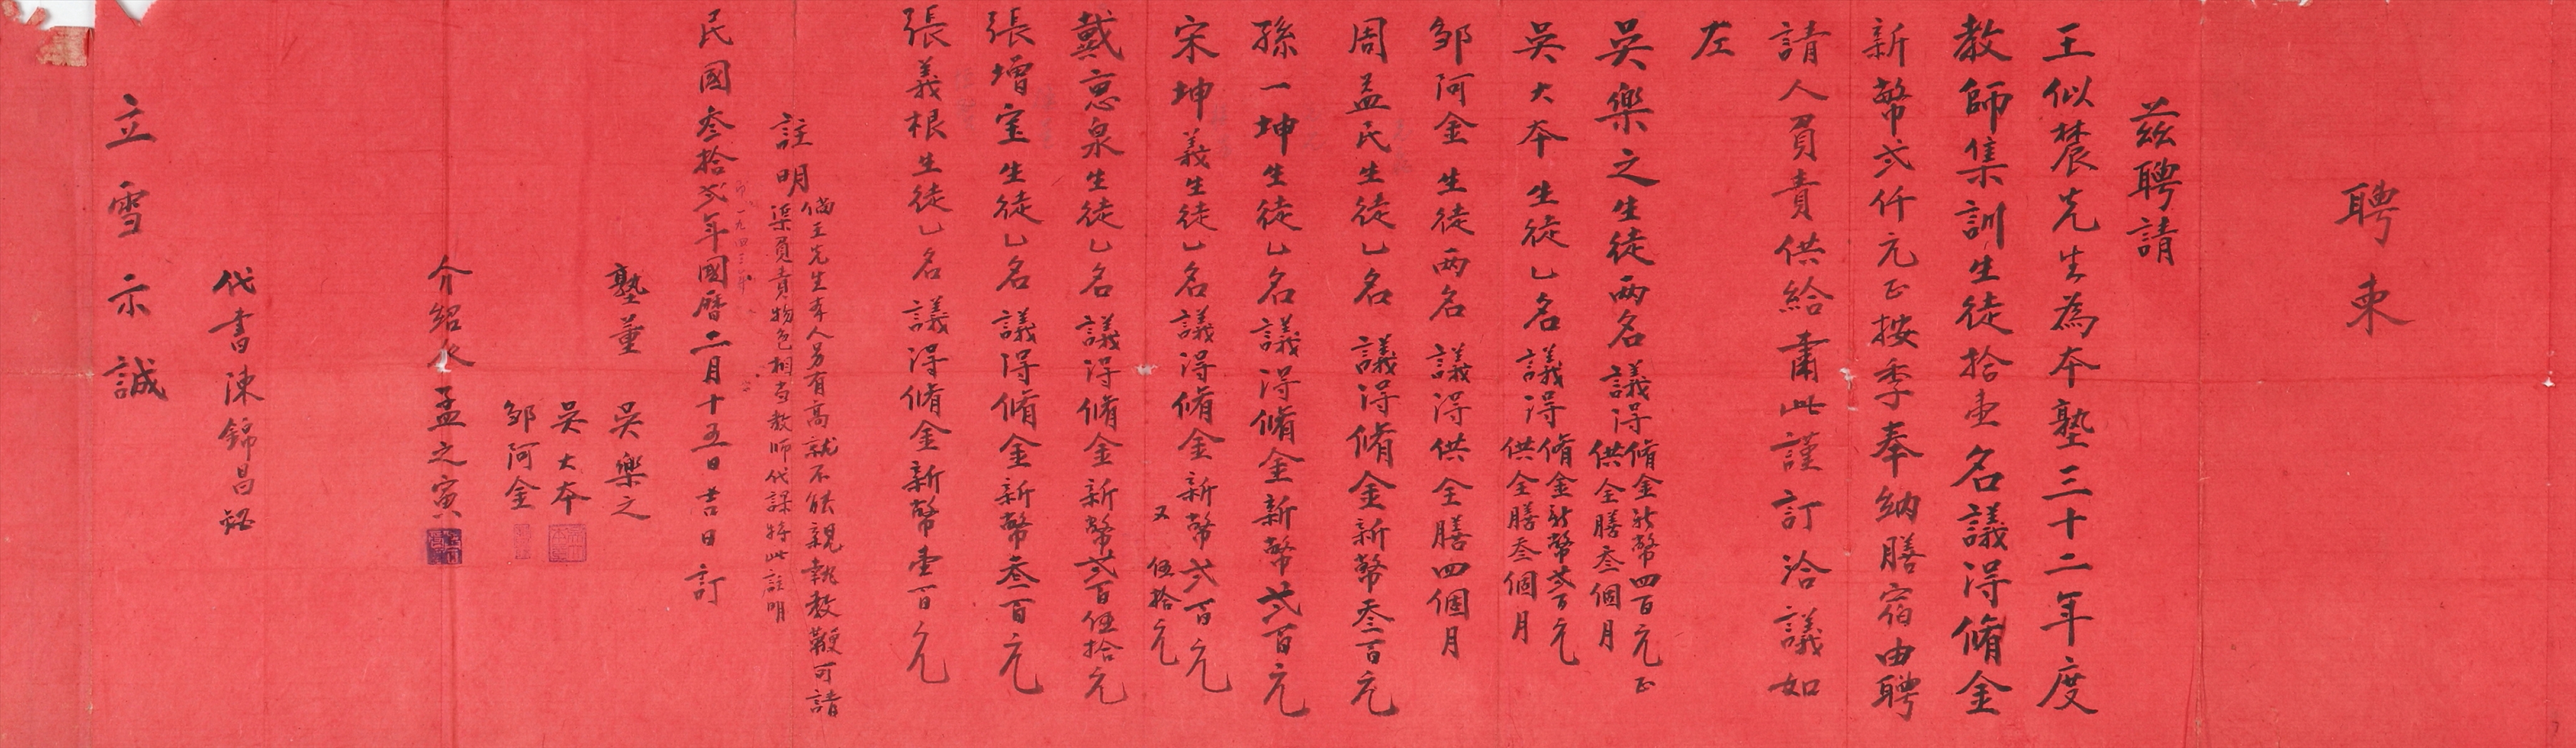 聘柬
茲聘請
王似農先生為本塾三十二年度
教師集訓生徒拾壹名議淂脩金
新幣弍仟元正按季奉納膳宿由聘
請人員責供給肅此謹訂洽議如
左
吳樂之生徒兩名議淂脩金新幣四百元正
供全膳叁個月
吳大本生徒乙名議淂脩金新幣弍百元
供全膳叁個月
邹阿金生徒兩名議淂供全膳四個月
周益民生徒乙名議淂脩金新幣叁百元
孫一坤生徒乙名議淂脩金新幣弍百元
宋坤義生徒乙名議淂脩金新幣弍百元
又伍拾元
戴惠泉生徒乙名議淂脩金新幣弍百伍拾元
張增宝生徒乙名議淂脩金新幣叁百元
張義根生徒乙名議淂脩金新幣壹百元
註明 倘王先生本人另有高就不能親執教鞭可請
渠員責物色相当教師代課特此註明
民國叁拾弍年國曆二月十五日吉日訂
一九四三年
塾董 吳樂之
吳大本
邹阿金
介紹人 孟之寅
代書陳錦昌
立雪示誠